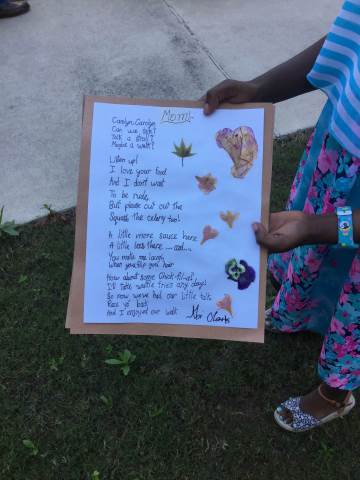 Mom!
Carolyn, Carolyn
Can we talk?
Took a stroll?
Maybe a walk?
Listen up!
I love your food
And I don't want
To be rude,
But please cut out the
Squash, the celery too!
A little more sauce here
A little less there ... and...
You made me laugh
when you flip your hair
How about some Chick-fil-a?
I'll take waffle fries any day!
So now we've had our little talk
Race ya' back
And I enjoyed our walk